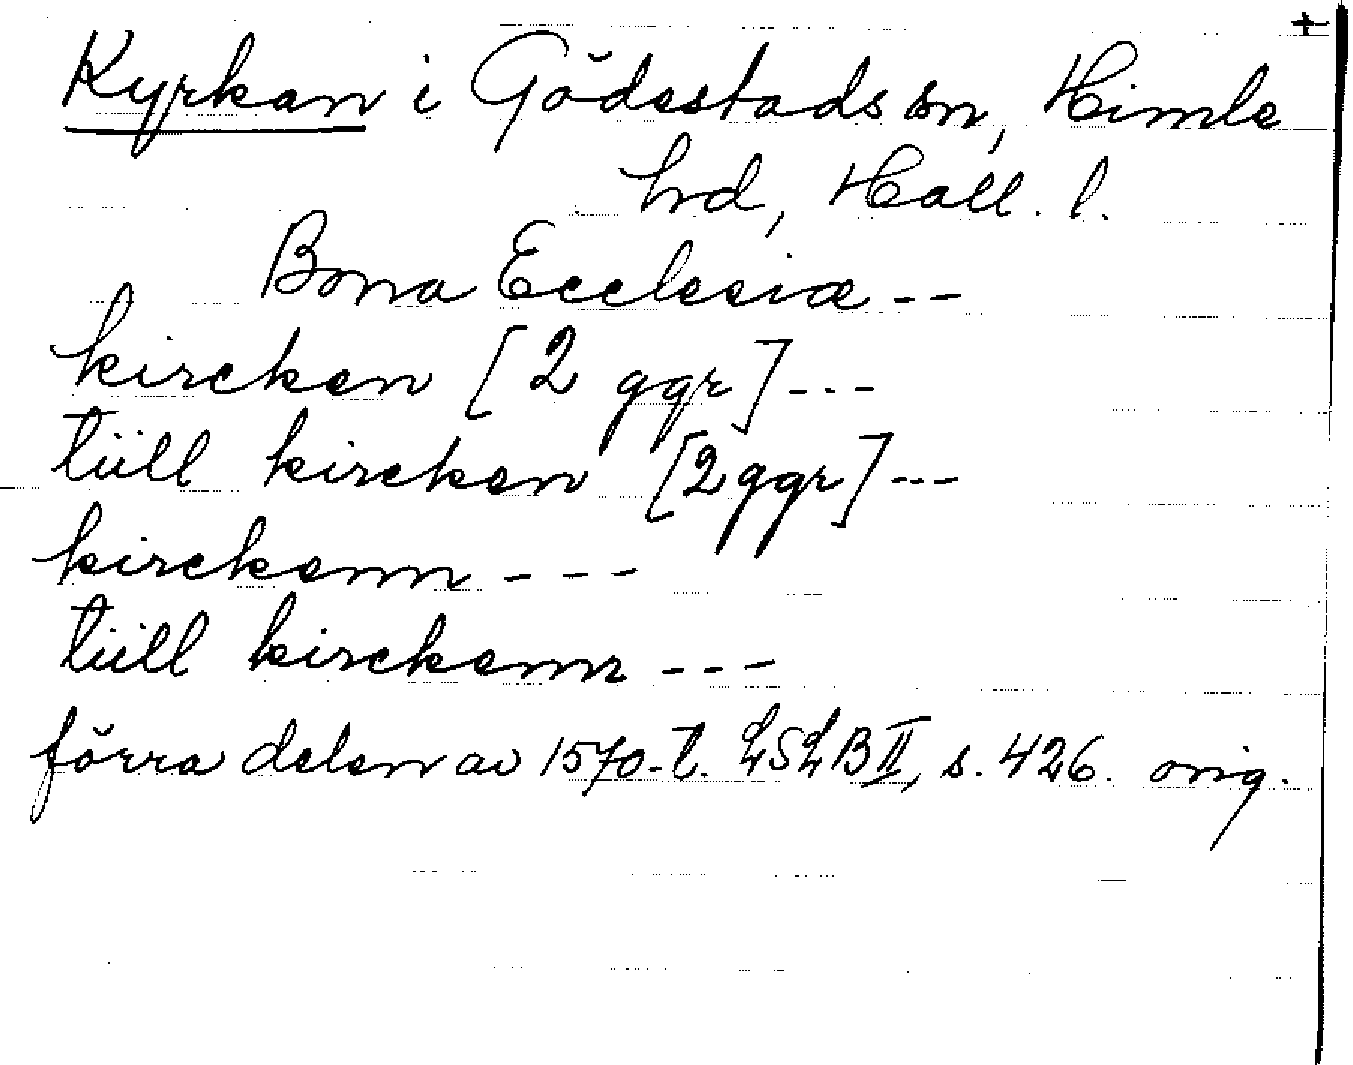 +
Kyrkan i Gödestads sn, Himle
hrd, Hall. l.
Bona Ecclesiæ --
kircken [2 ggr] ---
tiill kircken [2 ggr] ---
kirckenn ---
tiill kirckenn ---
förra delen av 1570-t. LSLB II, s. 426. orig.